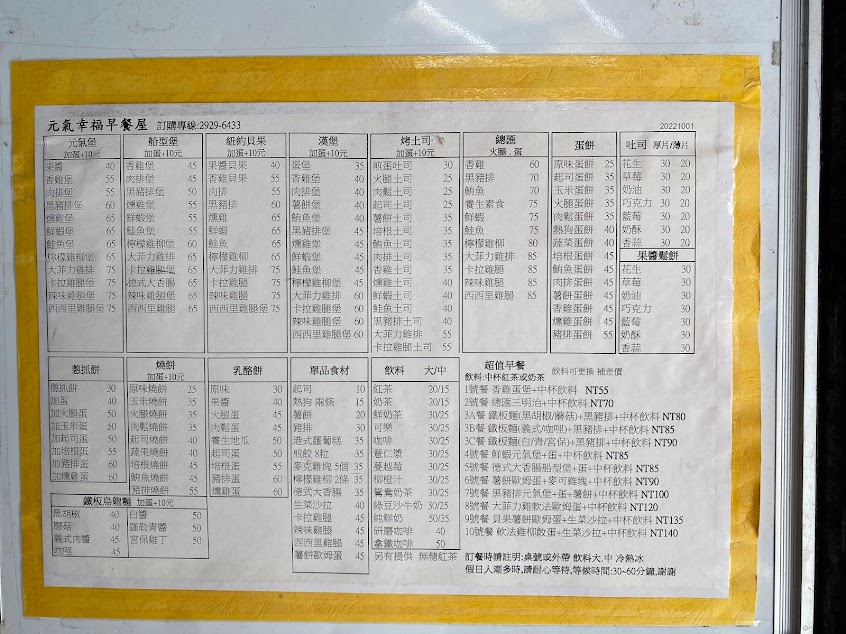 元氣幸福早餐屋 訂購專線:2929-6433
20221001
元氣堡
加蛋+10元
果醬 40
香雞堡 55
肉排堡 55
黑豬排堡 60
燻雞堡 65
鮮蝦堡 65
鮭魚堡 65
檸檬雞柳堡 65
大菲力雞排 75
卡拉雞腿堡 75
辣味雞腿堡 75
西西里雞腿堡 75
船型堡
加蛋+10元
香雞堡 45
肉排堡 45
黑豬排堡 50
燻雞堡 55
鮮蝦堡 55
鮭魚堡 55
檸檬雞柳堡 60
大菲力雞排 65
卡拉雞腿堡 65
德式大香腸 65
辣味雞腿堡 65
西西里雞腿堡 65
紐約貝果
加蛋+10元
果醬貝果 40
香雞貝果 55
肉排 55
黑豬排 60
燻雞 65
鮮蝦 65
鮭魚 65
檸檬雞柳 65
大菲力雞排 75
卡拉雞腿 75
辣味雞腿 75
西西里雞腿 75
漢堡
加蛋+10元
蛋堡 35
香雞堡 40
肉排堡 40
薯餅堡 40
鮪魚堡 40
黑豬排堡 45
燻雞堡 45
鮮蝦堡 45
鮭魚堡 45
檸檬雞柳堡 45
大菲力雞排 60
卡拉雞腿堡 60
辣味雞腿堡 60
西西里雞腿堡 60
烤土司
加蛋+10元
煎蛋吐司 30
火腿土司 35
肉鬆土司 35
起司土司 35
薯餅土司 35
培根土司 35
鮪魚土司 35
肉排土司 35
香雞土司 35
燻雞土司 40
鮮蝦土司 40
鮭魚土司 40
黑豬排土司 40
大菲力雞排 55
卡拉雞腿土司 55
總匯
火腿 . 蛋
香雞 60
黑豬排 70
鮪魚 70
養生素食 75
鮮蝦 75
鮭魚 75
檸檬雞柳 80
大菲力雞排 85
卡拉雞腿 85
辣味雞腿 85
西西里雞腿 85
蛋餅
原味蛋餅 25
起司蛋餅 35
玉米蛋餅 35
火腿蛋餅 35
肉鬆蛋餅 35
熱狗蛋餅 40
蔬菜蛋餅 40
培根蛋餅 45
鮪魚蛋餅 45
肉排蛋餅 45
薯餅蛋餅 45
香雞蛋餅 45
燻雞蛋餅 45
豬排蛋餅 55
吐司 厚片/薄片
花生 30 20
草莓 30 20
奶油 30 20
巧克力 30 20
藍莓 30 20
奶酥 30 20
香蒜 30 20
果醬鬆餅
花生 30
草莓 30
奶油 30
巧克力 30
藍莓 30
奶酥 30
香蒜 30
蔥抓餅
蔥抓餅 30
加蛋 40
加火腿蛋 50
加玉米蛋 50
加起司蛋 50
加培根蛋 55
加豬排蛋 60
加燻雞蛋 60
燒餅
加蛋+10元
原味燒餅 25
玉米燒餅 35
火腿燒餅 35
肉鬆燒餅 35
起司燒餅 40
蔬果燒餅 40
培根燒餅 45
燻雞燒餅 45
豬排燒餅 55
乳酪餅
原味 30
果醬 40
火腿蛋 45
肉鬆蛋 45
養生地瓜 50
起司蛋 50
培根蛋 55
豬排蛋 60
燻雞蛋 60
鐵板烏龍麵 加蛋+10元
黑胡椒 45 白醬 50
蘑菇 45 羅勒青醬 50
義式肉醬 45 宮保雞丁 50
咖哩 45
單品食材
起司 10
熱狗 兩條 15
薯餅 20
豬排 30
港式蘿蔔糕 35
煎餃 8粒 35
麥克雞塊 5個 35
檸檬雞柳 2條 35
德式大香腸 35
生菜沙拉 40
卡拉雞腿 45
辣味雞腿 45
西西里雞腿 45
薯餅歐姆蛋 45
飲料 大/中
紅茶 20/15
奶茶 20/15
鮮奶茶 30/25
可樂 30/25
咖啡 30/25
薏仁漿 30/25
蔓越莓 30/25
柳橙汁 30/25
鴛鴦奶茶 30/25
綠豆沙牛奶 30/25
純鮮奶 50/35
研磨咖啡 40
拿鐵咖啡 50
另有提供 無糖紅茶
超值早餐 飲料可更換 補差價
飲料:中杯紅茶或奶茶
1號餐 香雞蛋堡+中杯飲料 NT55
2號餐 總匯三明治+中杯飲料 NT70
3A餐 鐵板麵(黑胡椒/蘑菇)+黑豬排+中杯飲料 NT80
3B餐 鐵板麵(義式/咖哩)+黑豬排+中杯飲料 NT85
3C餐 鐵板麵(白/青/宮保)+黑豬排+中杯飲料 NT90
4號餐 鮮蝦元氣堡+蛋+中杯飲料 NT85
5號餐 德式大香腸船型堡+蛋+中杯飲料 NT85
6號餐 薯餅歐姆蛋+麥可雞塊+中杯飲料 NT90
7號餐 黑豬排元氣堡+蛋+薯餅+中杯飲料 NT100
8號餐 大菲力雞軟法歐姆蛋+中杯飲料 NT120
9號餐 貝果薯餅歐姆蛋+生菜沙拉+中杯飲料 NT135
10號餐 軟法雞柳散蛋+生菜沙拉+中杯飲料 NT140
訂餐時請註明:桌號或外帶 飲料大.中 冷熱冰
假日人潮多時,請耐心等待,等候時間:30~60分鐘,謝謝